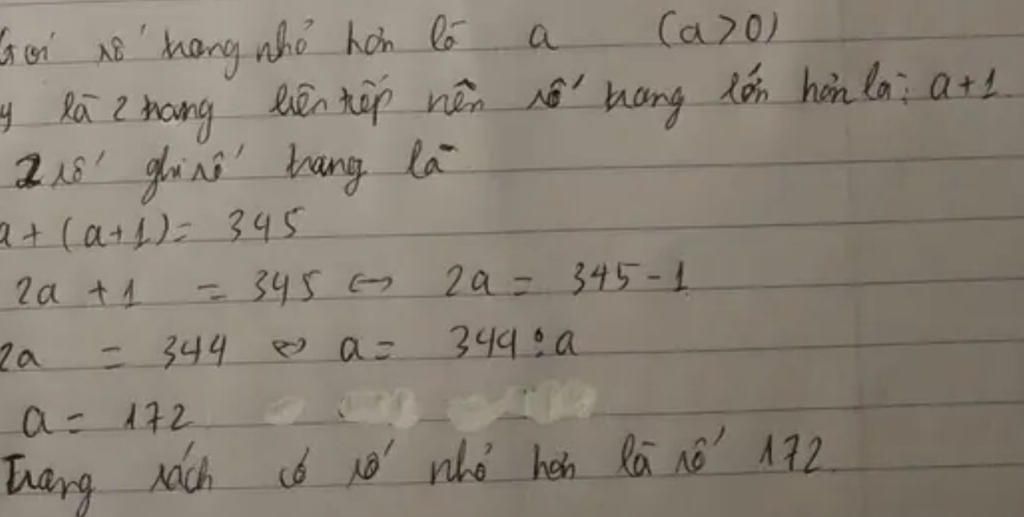 Gọi số trang nhỏ hơn là a (a>0)
y là 2 trang liên tiếp nên số trang lớn hơn là: a+1
2 số ghi số trang là
a + (a+1) = 345
2a + 1 = 345 ↔ 2a = 345-1
2a = 344 ⇔ a = 344 : a
a = 172
Trang sách có số nhỏ hơn là số 172